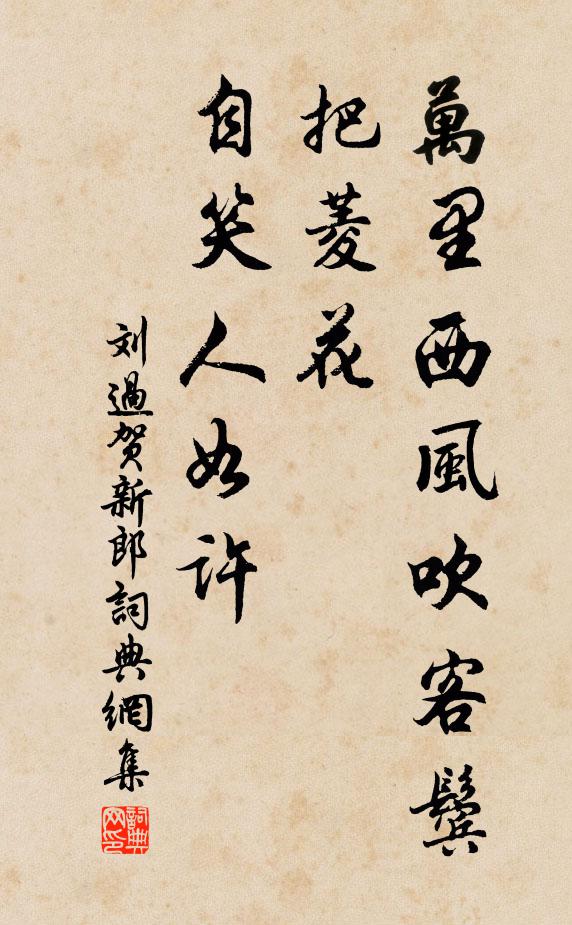 萬里西風吹客鬢
把菱花
自笑人如許
刘過贺新郎詞典網集
詞典网印